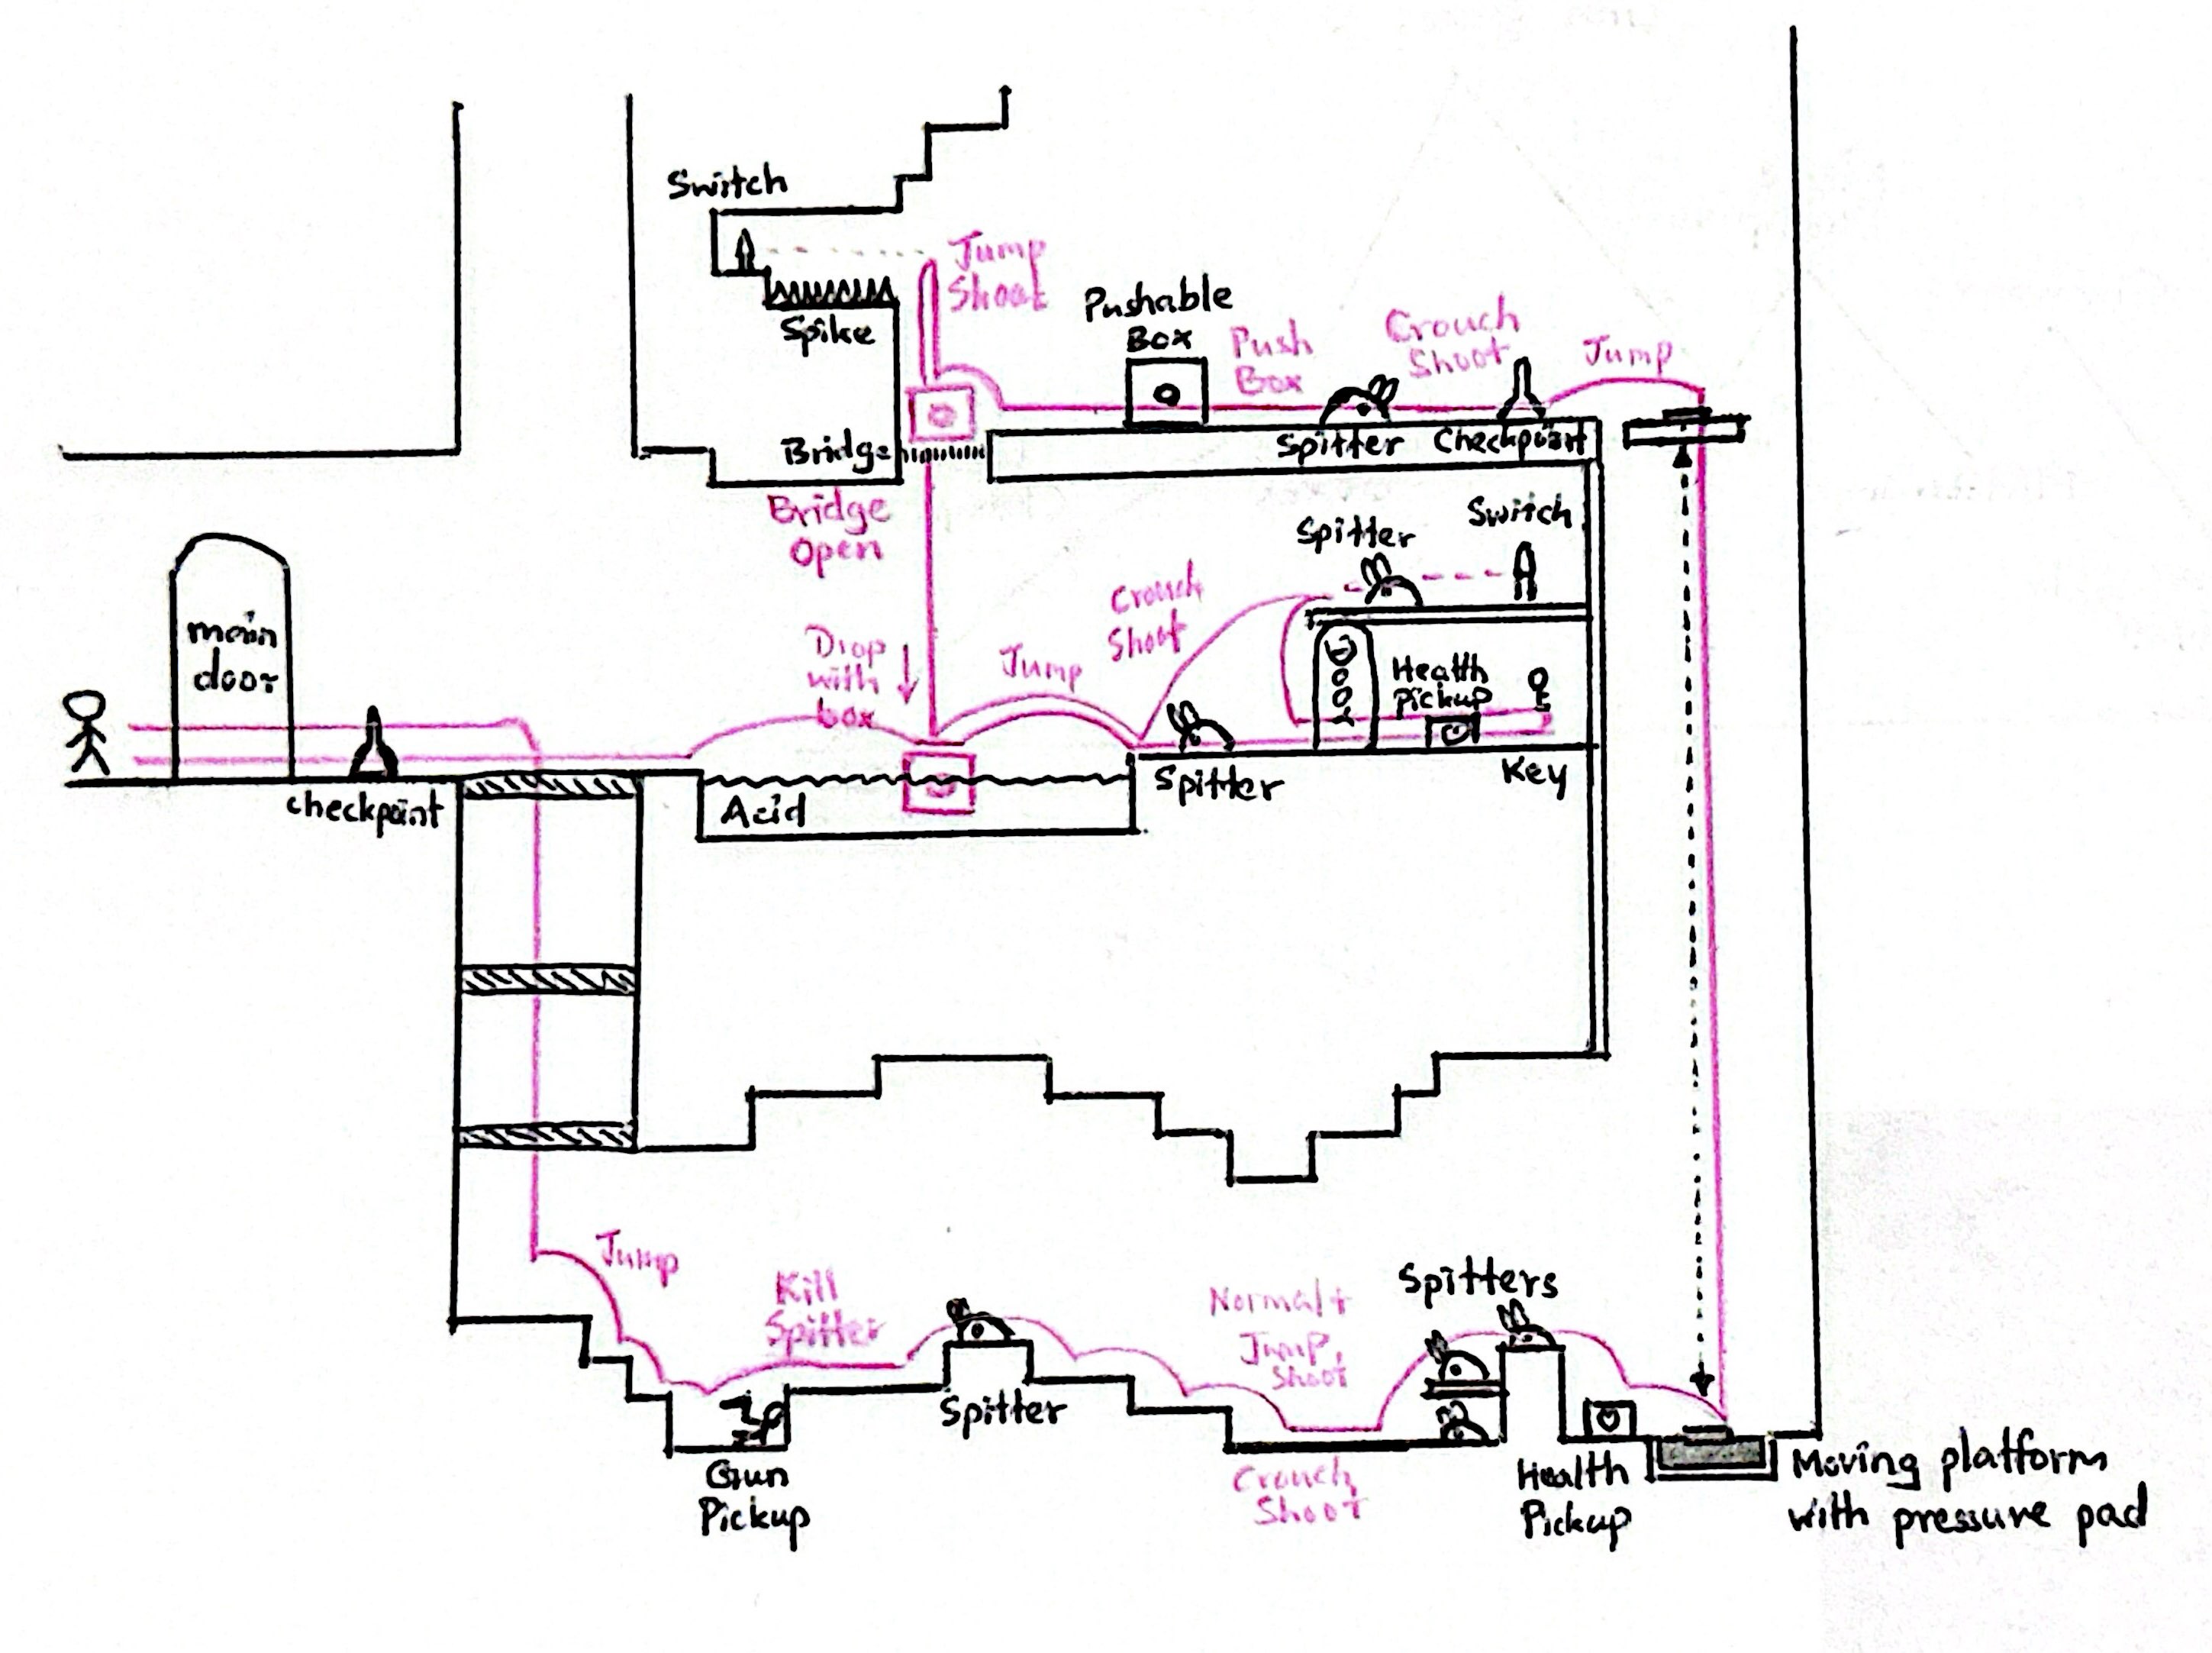 Switch
Jump
Shoot
Spike
Pushable
Box
Push
Box
Crouch
Shoot
Jump
Bridge
Spitter
Checkpoint
Bridge
Open
Spitter
Switch
main
door
Drop
with
box
Jump
Crouch
Shoot
Health
Pickup
checkpoint
Acid
Spitter
Key
Jump
Kill
Spitter
Normal +
Jump,
Shoot
Spitters
Spitter
Gun
Pickup
Crouch
Shoot
Health
Pickup
Moving platform
with pressure pad